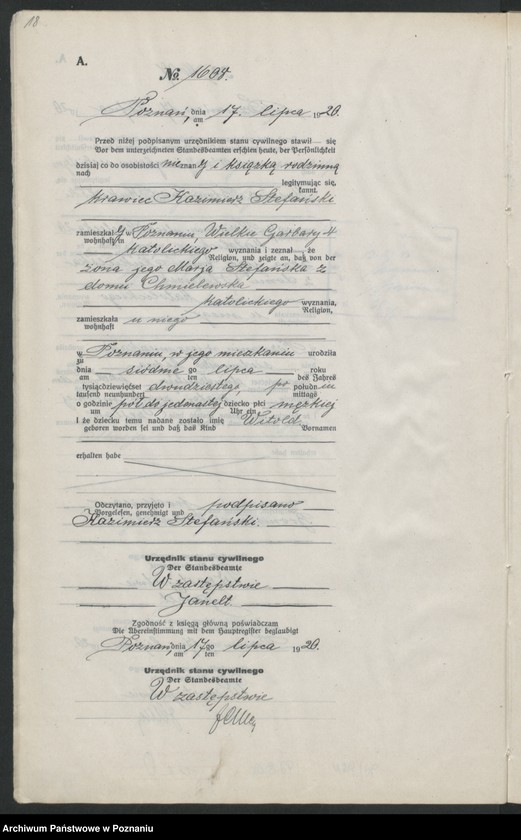 18
A.
No. 1604.
Poznań, dnia 17. lipca 1920.
am
Przed niżej podpisanym urzędnikiem stanu cywilnego stawił się
Vor dem unterzeichneten Standesbeamten erschien heute, der Persönlichkeit
dzisiaj co do osobistości nieznany i książką rodzinną
nach
legitymując się,
kannt,
krawiec Kazimierz Stefański
zamieszkały w Poznaniu, Wielkie Garbary 4
wohnhaft in
katolickiego wyznania i zeznał, że
Religion, und zeigte an, daß von der
żona jego Marja Stefańska z
domu Chmielewska
katolickiego wyznania,
Religion,
zamieszkała u niego
wohnhaft
w Poznaniu, w jego mieszkaniu urodziła
zu
dnia siódmego lipca roku
am ten des Jahres
tysiącdziewięćset dwudziestego, po południu
tausend neunhundert mittags
o godzinie pół do jedenastej dziecko płci męzkiej
um Uhr ein
i że dziecku temu nadane zostało imię Witold
geboren worden sei und daß das Kind Vornamen
erhalten habe
Odczytano, przyjęto i podpisano
Vorgelesen, genehmigt und
Kazimierz Stefański.
Urzędnik stanu cywilnego
Der Standesbeamte
W zastępstwie
Janelt
Zgodność z księgą główną poświadczam
Die Übereinstimmung mit dem Hauptregister beglaubigt
Poznań, dnia 17go lipca 1920.
am ten
Urzędnik stanu cywilnego
Der Standesbeamte
W zastępstwie
Archiwum Państwowe w Poznaniu